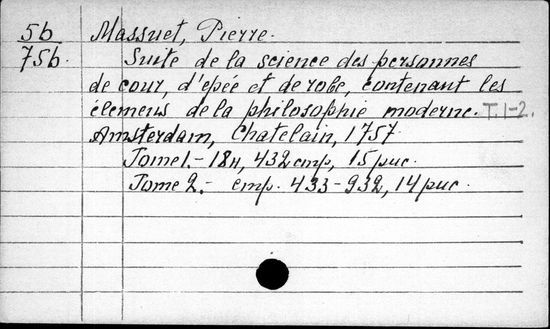 5b Massuet, Pierre.
75b. Suite de la science des personnes
de cour, d'epée et de robe, contenant les
élemens de la philosophie moderne. T. 1-2.
Amsterdam, Chatelain, 1757.
Tome 1. - 18н, 432 стр, 15 рис.
Tome 2. - стр. 433-932, 14 рис.